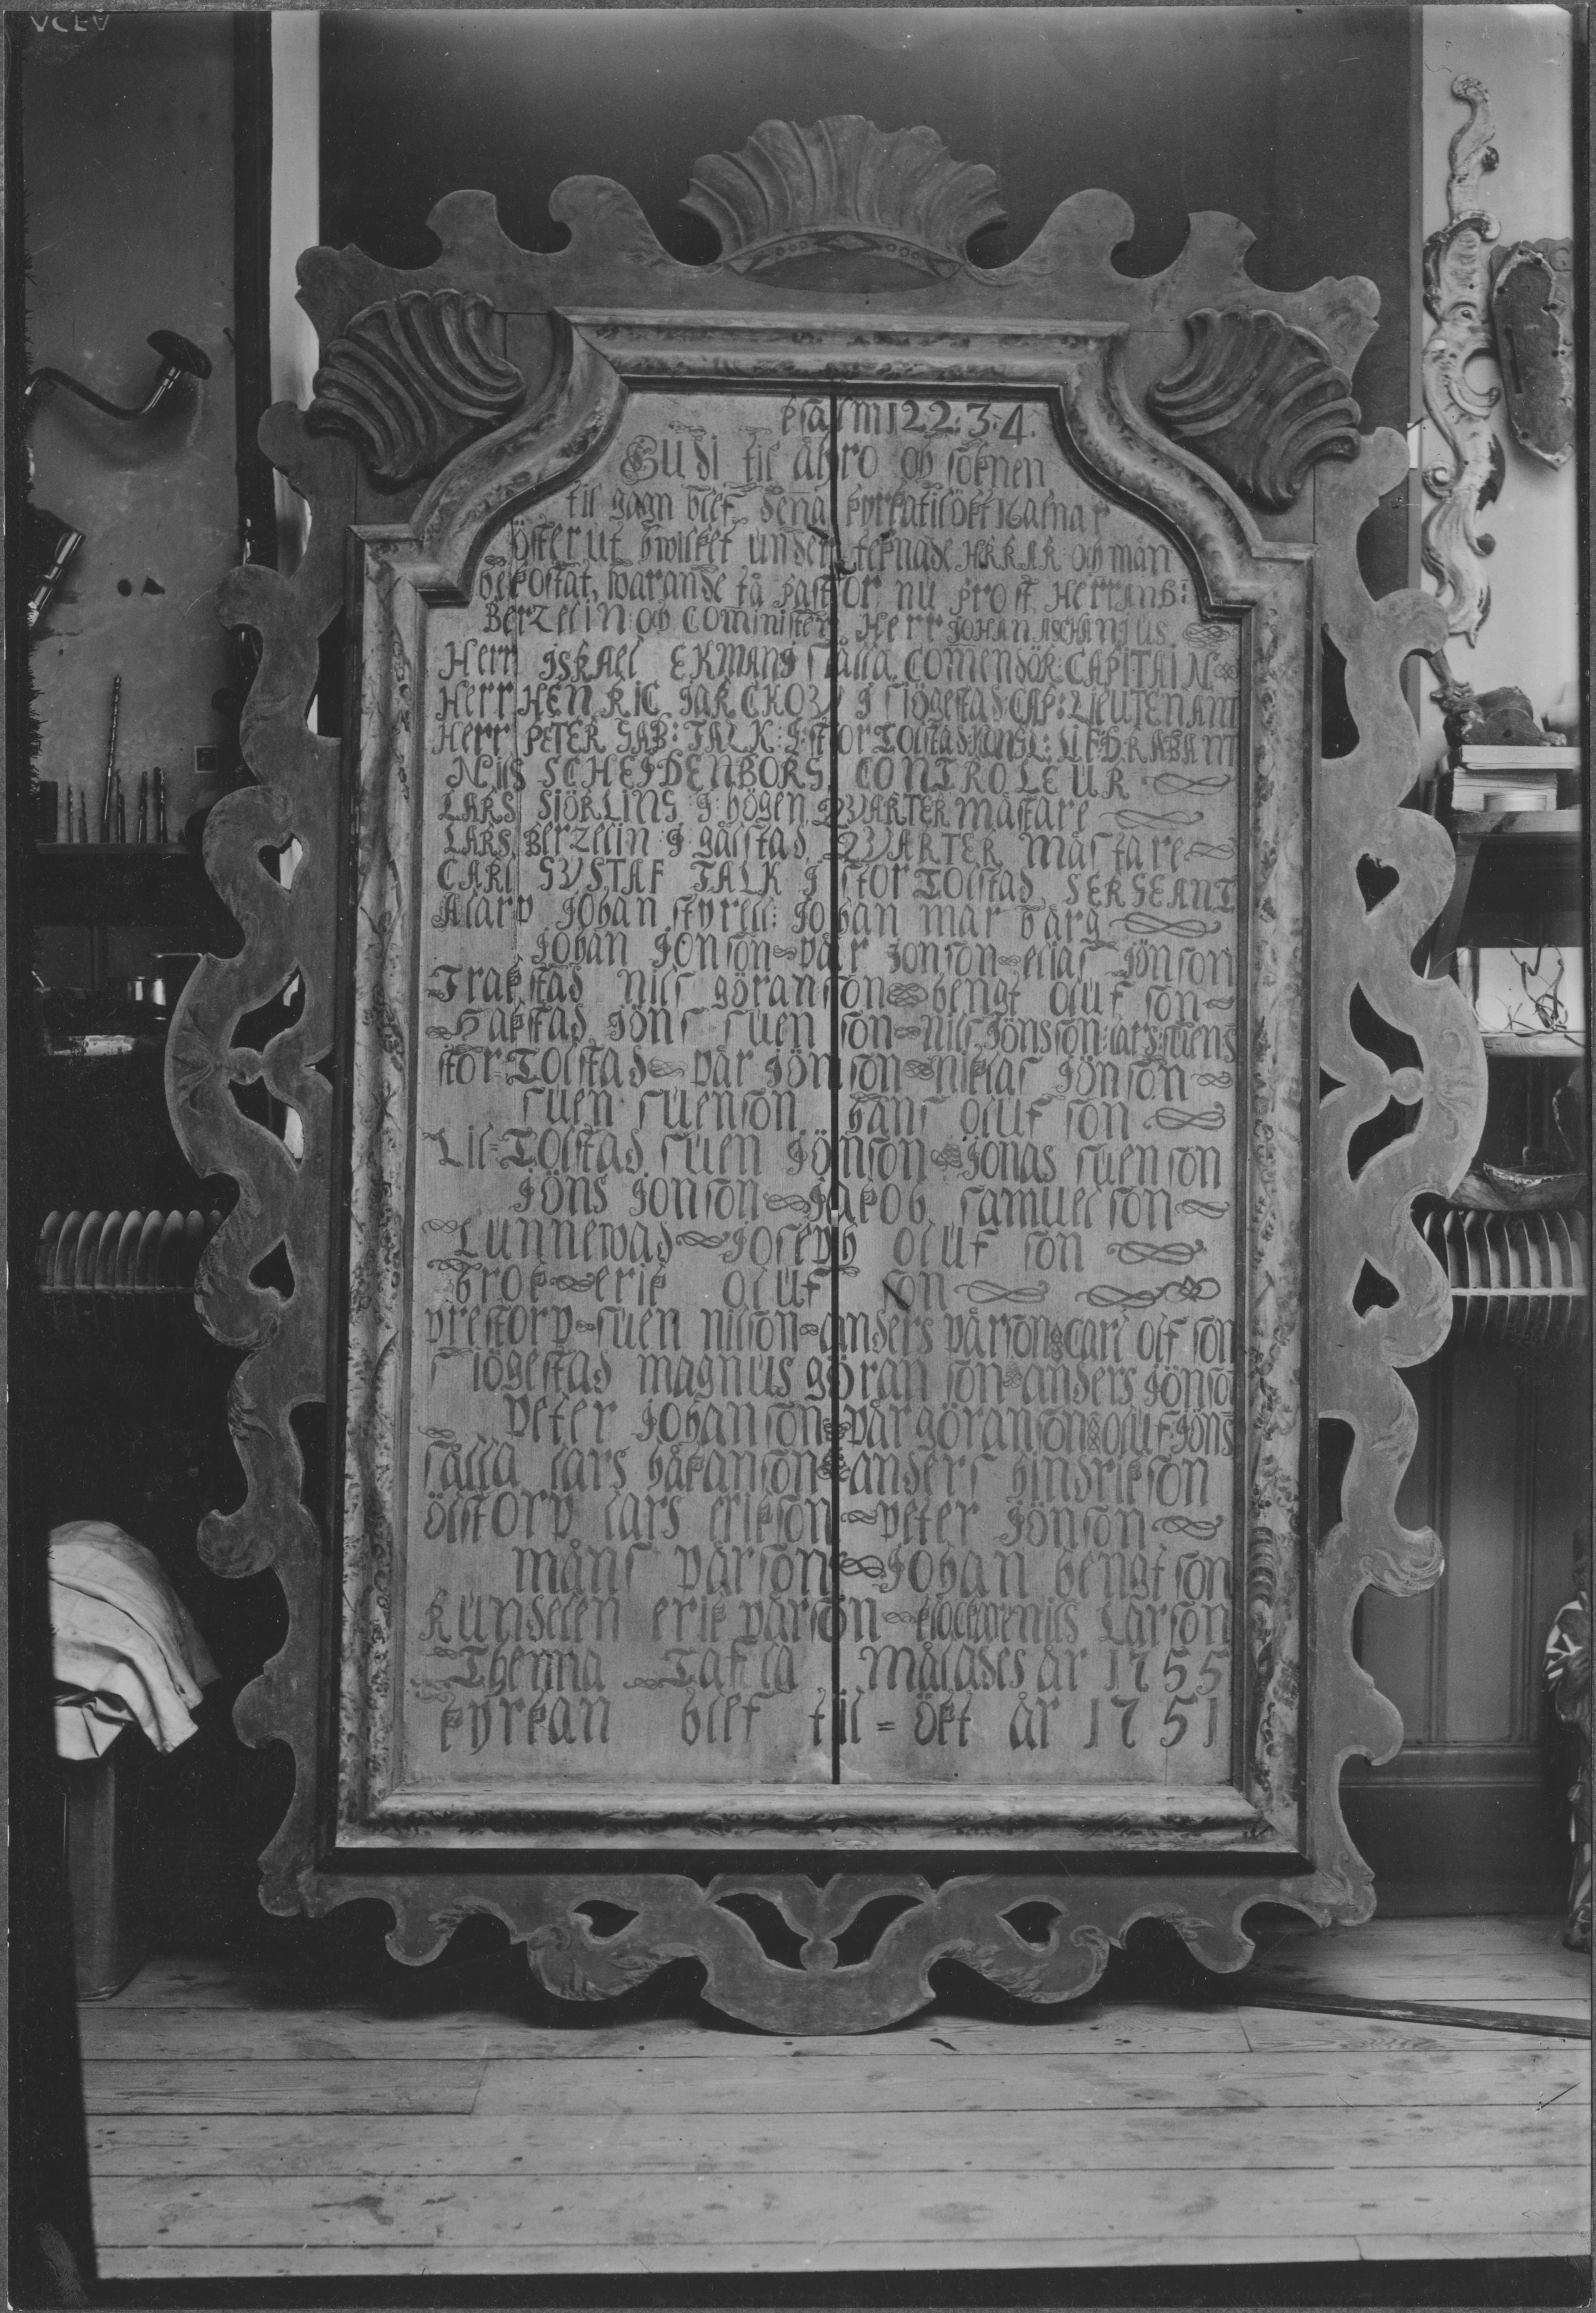 psalm 122: 3: 4.
Gudi til ähro och soknen
til gagn blef dena kyrka tilökt 16 alnar
öster ut hwilket under teknade HERRAR och män
bekostat, warande tå pastor nu prost, Herr AND:
Berzelin: och Cominister Herr JOHAN ASCHANIUS
Herr ISRAEL EKMAN J sålla COMENDÖR: CAPITAIN
Herr HENRIC J siögestad CAP: LIEUTENANT
Herr PETER GAB: FALK: J: stor Tolstad LIFDRABANT
Nils SCHEIDENBORG CONTROLEUR
LARS SIÖRLING J: högen QVARTER mästare
LARS Berzelin J gålstad QVARTER mästare
CARL GUSTAF FALK J stor Tolstad SERGEANT
Johan styrell: Johan mar bärg
Johan Jonson pär Jonson elias Jönson
Trakstad nils göranson bengt oluf son
Hakstad Jöns suen son nils Jönsson lars suens
stor-Tolstad pär Jönson niklas Jönson
suen suenson hans oluf son
Lil-Tolstad suen Jönson Jonas suenson
Jöns Jonson Jakob samuelson
Lunnewad Joseph oluf son
brok erik oluf son
prestorp suen nilson anders pärson carl olf son
siögestad magnus göran son anders Jönson
peter Johanson pär göranson oluf Jöns
sålla lars håkanson anders hindrikson
ölstorp lars erikson peter Jönson
måns pärson Johan bengtson
Kundelen erik pärson nils Larson
Thenna Tafla målades år 1755
kyrkan blef til=ökt år 1751